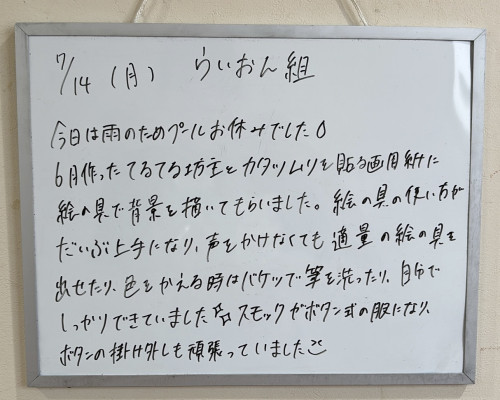 7/14 (月) らいおん組
今日は雨のためプールお休みでした
6月作ったてるてる坊主とカタツムリを貼る画用紙に
絵の具で背景を描いてもらいました。絵の具の使い方が
だいぶ上手になり、声をかけなくても適量の絵の具を
出せたり、色をかえる時はバケツで筆を洗ったり、自分で
しっかりできていました☆スモックがボタン式の服になり、
ボタンの掛け外しも頑張っていました